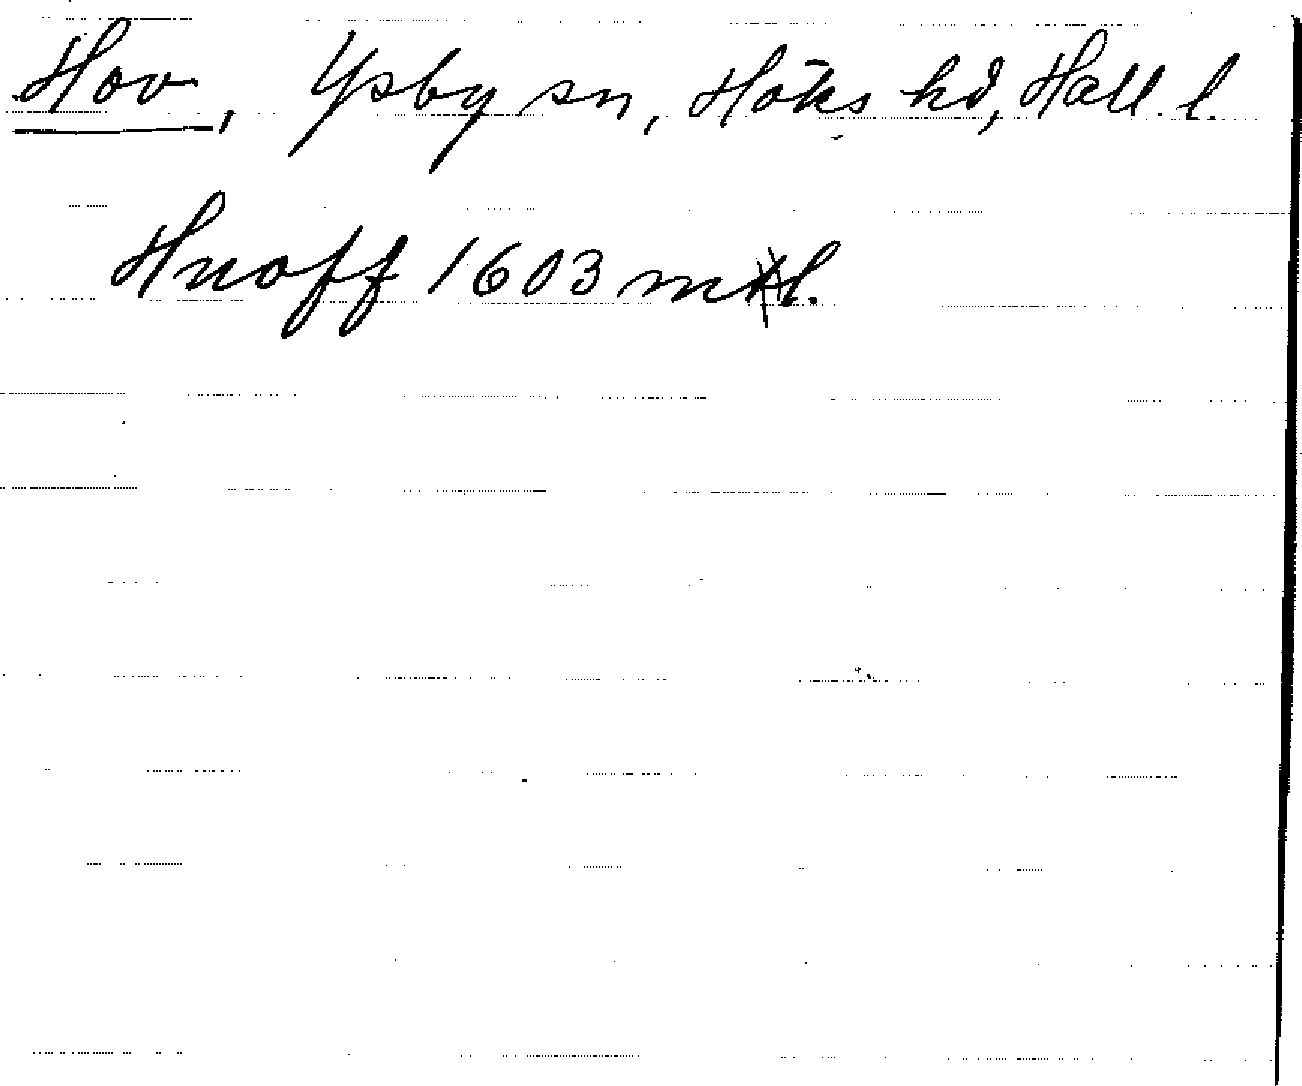 Hov, Ysby sn, Höks hd, Hall. l.
Hnoff 1603 mtl.